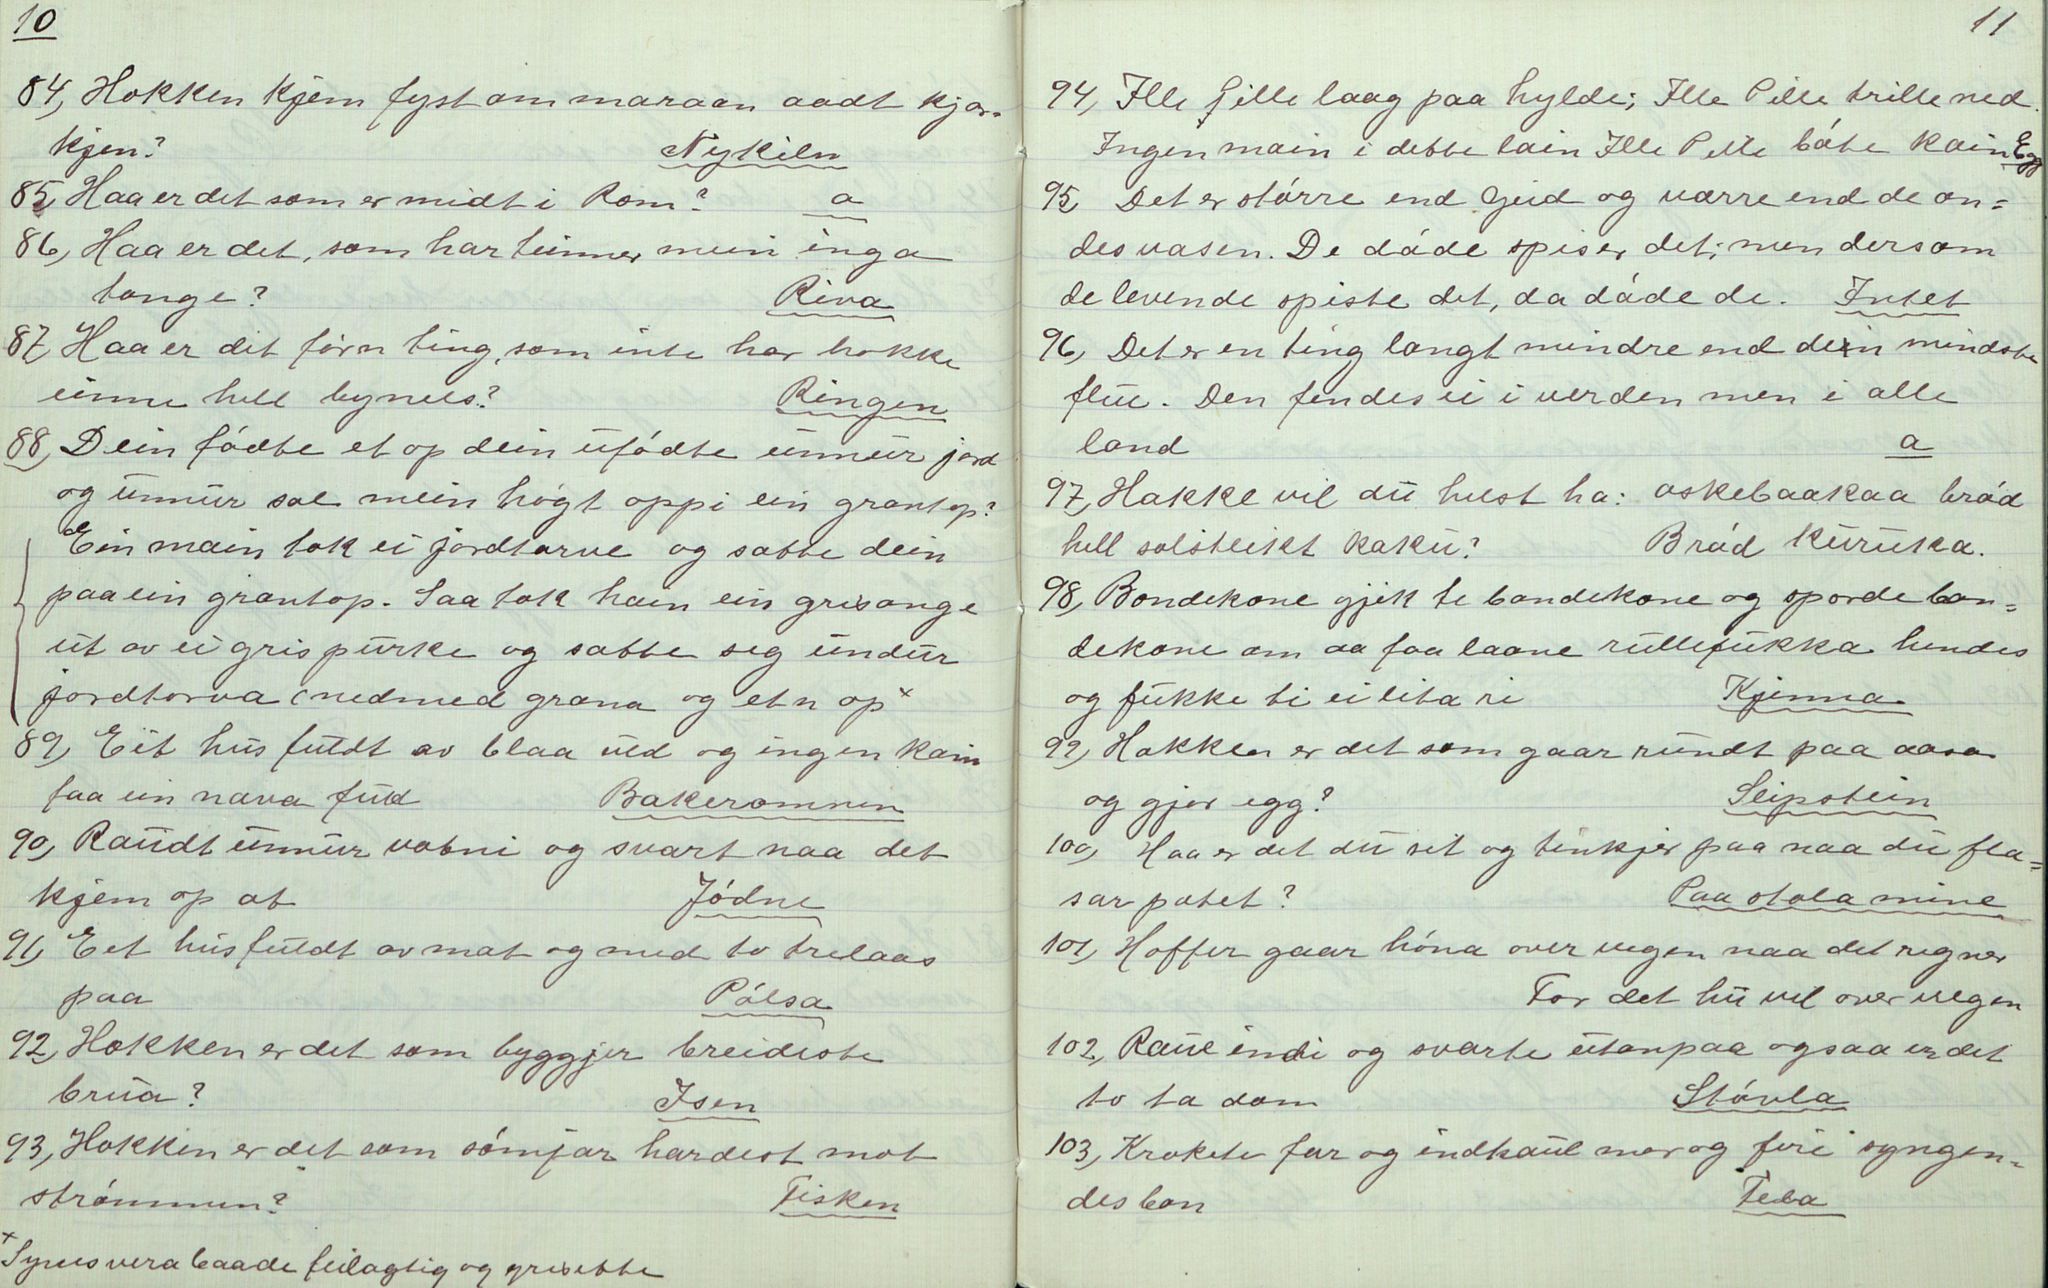 10
84, Hokken kjem fyst om maraan aadt kjør-
kjen? Nykiln
85, Haa er det som er midt i Rom? o
86, Haa er det, som har tinner mein inga
tonge? Riva
87, Haa er dit førn ting, som inte har hokke
einne hell bynels? Ringen
88, Dein fødte et op dein ufødte unnur jord
og unnur sol mein høgt oppi ein grantop?
Ein main tok ei jordtorve og satte dein
paa ein grantop. Saa tok hain ein grisonge
ut av ei grispurke og satte seg undur
jordtorva (nedmed grana og et'n op x
89, Eit hus fuldt av blaa uld og ingen kain
faa ein nava fuld Bakeromnen
90, Raudt unnur votni og svart naa det
kjem op at Jødne
91, Eet hus fuldt av mat og med to trelaas
paa Pølsa
92, Hokken er det som byggjer breideste
brua? Isen
93, Hokken er det som sømjar hardest mot
strømmen? Fisken
x Synes vera baade feilagtig og grisette
11
94, Ille Pille laag paa hylde; Ille Pille trille ned.
Ingen main i dette lain Ille Pille bøte kain Egg
95, Det er større end Gud og værre end de on-
des vasen. De døde spiser det; men dersom
de levende spiste det, da døde de. Intet
96, Det er en ting langt mindre end dein mindste
flue. Den findes ei i verden men i alle
land a
97, Hokke vil du helst ha: oskebaakaa brød
hell solsteikt kaku? Brød kuruka.
98, Bondekone gjik te bondekone og sporde bon-
dekone om aa faa laane rullefukka hendes
og fukke ti ei lita ri Kjenna
99, Hokken er det som gaar rundt paa aasa
og gjør egg? Slipstein
100, Haa er det du sit og tinkjer paa naa du fla-
sar potet? Paa stola mine
101, Hoffer gaar høna over vegen naa det regner
For det hu vil over vegen
102, Raue indi og svarte utanpaa ogsaa er det
to ta dom Støvla
103, Krokete far og indhaul mor og firi syngen-
des bon Fela